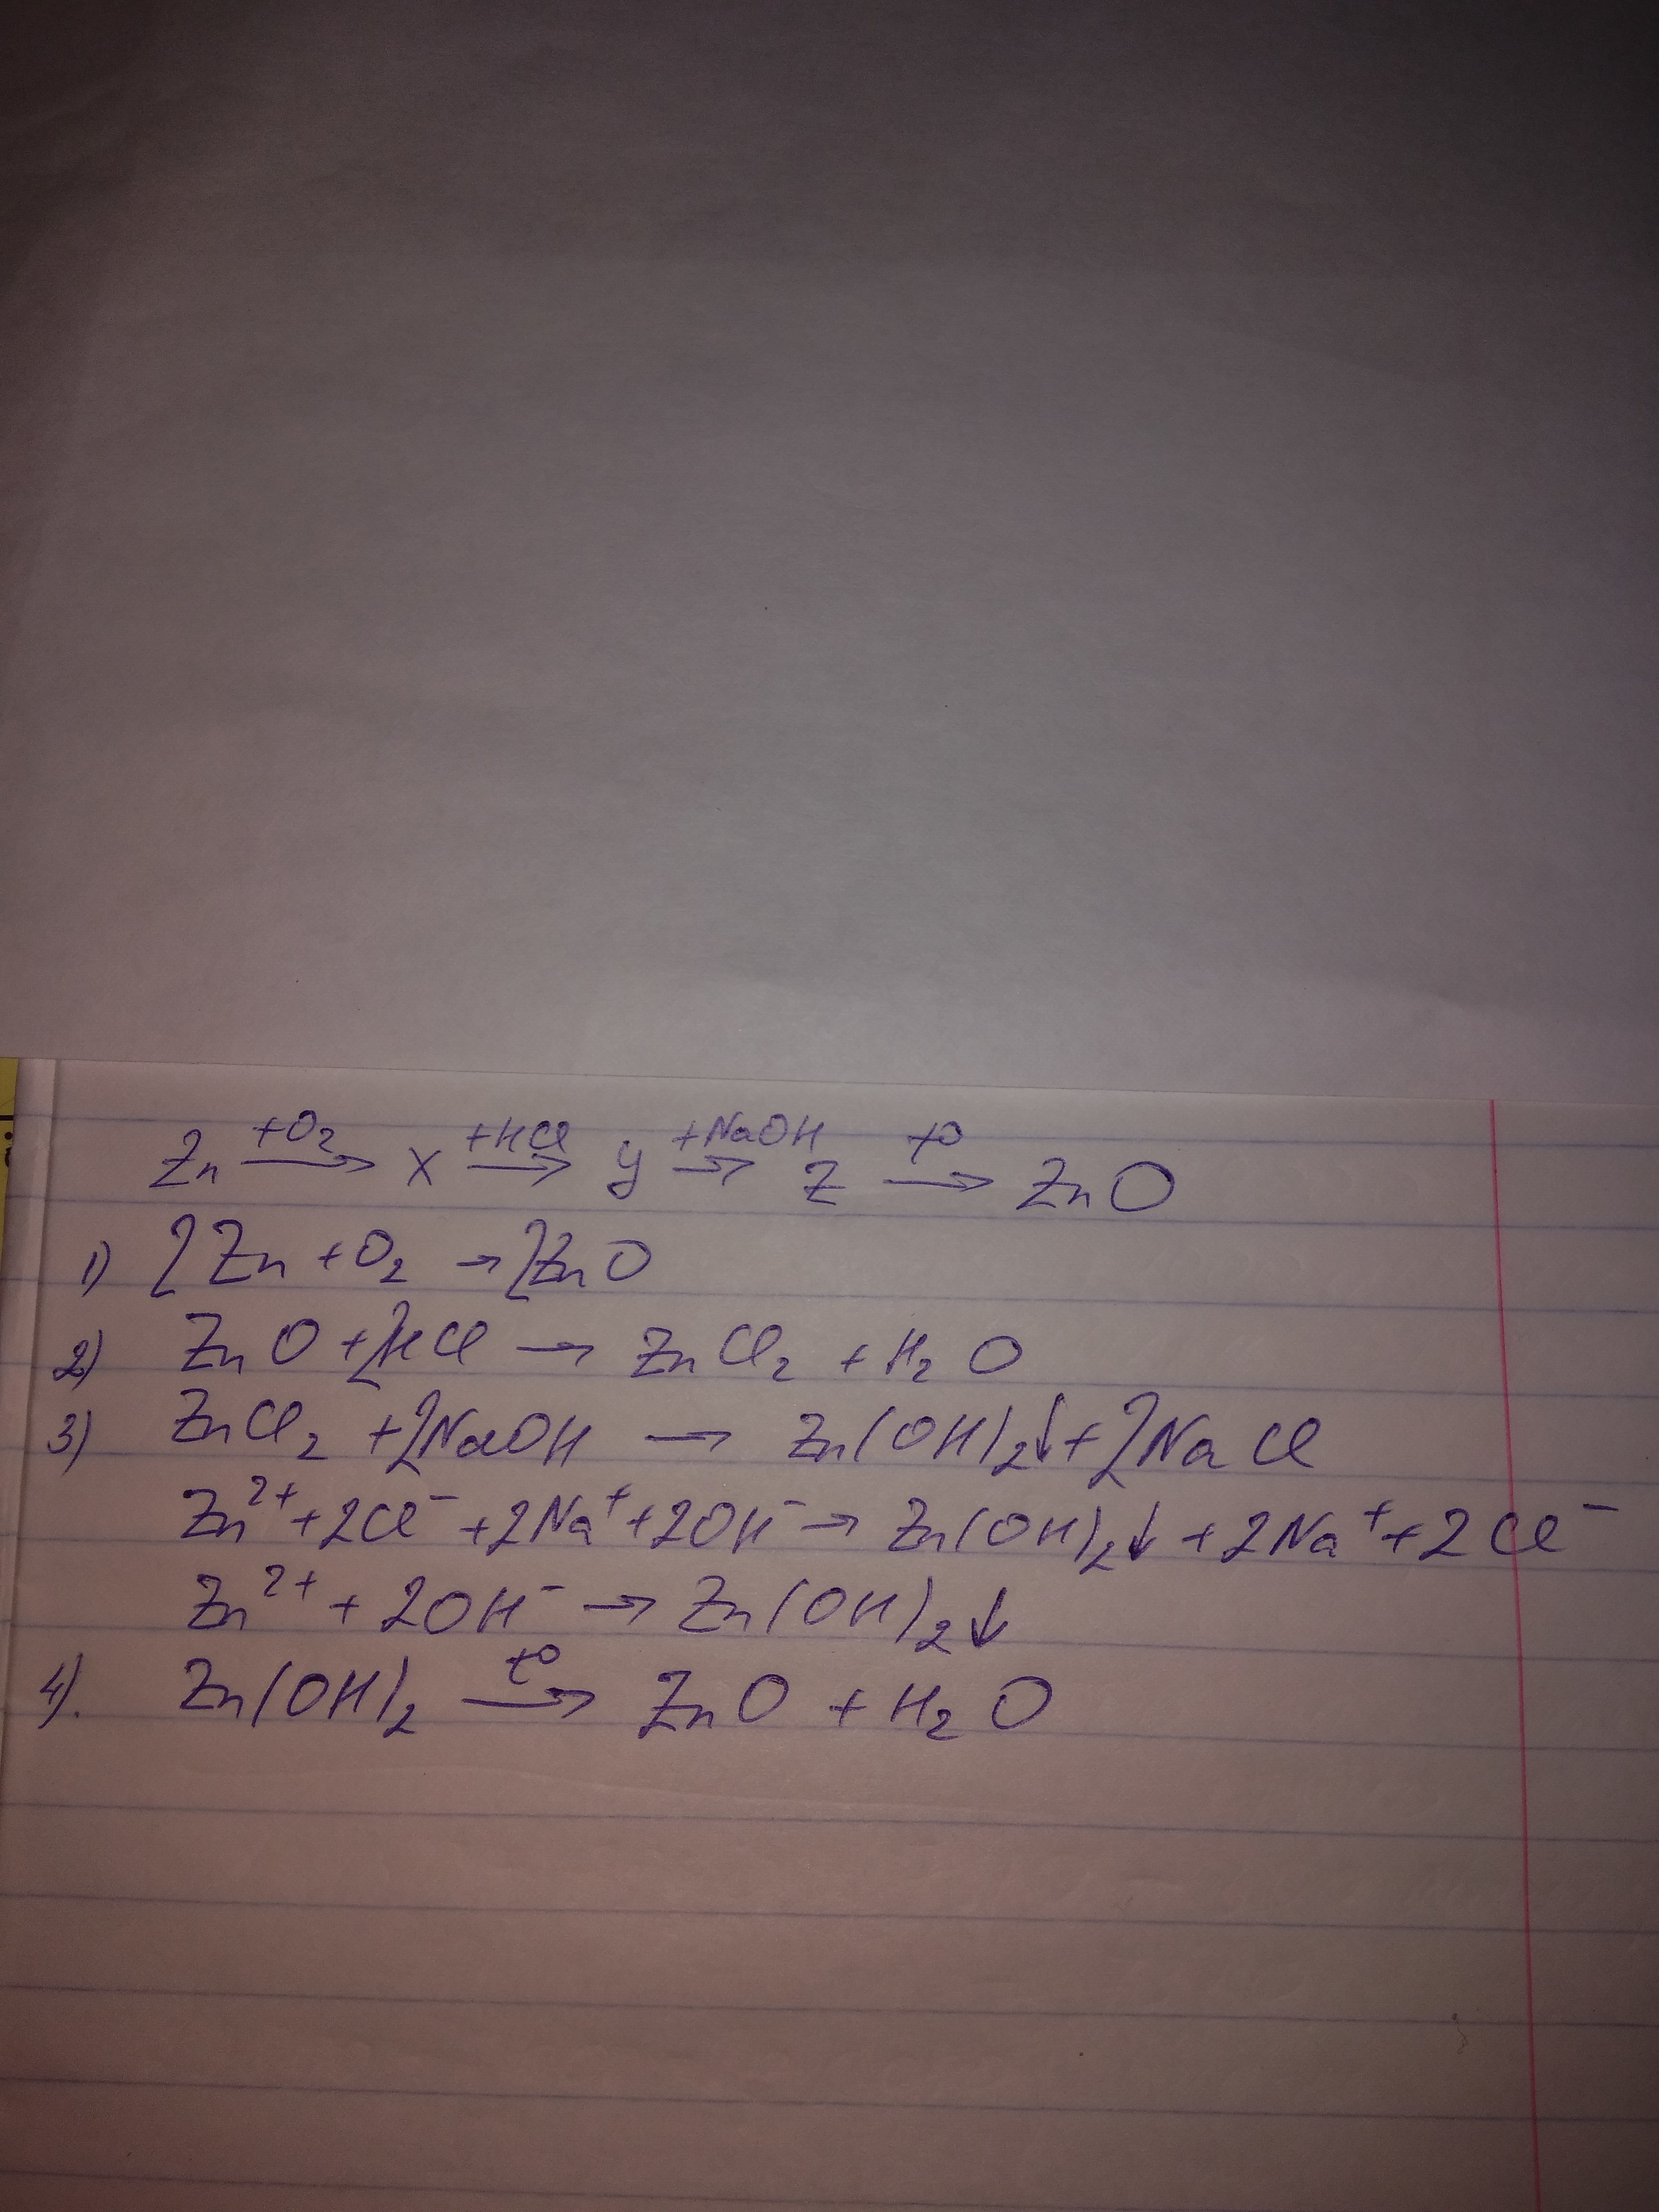 Zn +O₂→ X +HCl→ y +NaOH→ Z t°→ ZnO
1) 2Zn + O₂ → 2ZnO
2) ZnO + 2HCl → ZnCl₂ + H₂O
3) ZnCl₂ + 2NaOH → Zn(OH)₂↓ + 2NaCl
Zn²⁺ + 2Cl⁻ + 2Na⁺ + 2OH⁻ → Zn(OH)₂↓ + 2Na⁺ + 2Cl⁻
Zn²⁺ + 2OH⁻ → Zn(OH)₂↓
4). Zn(OH)₂ t°→ ZnO + H₂O